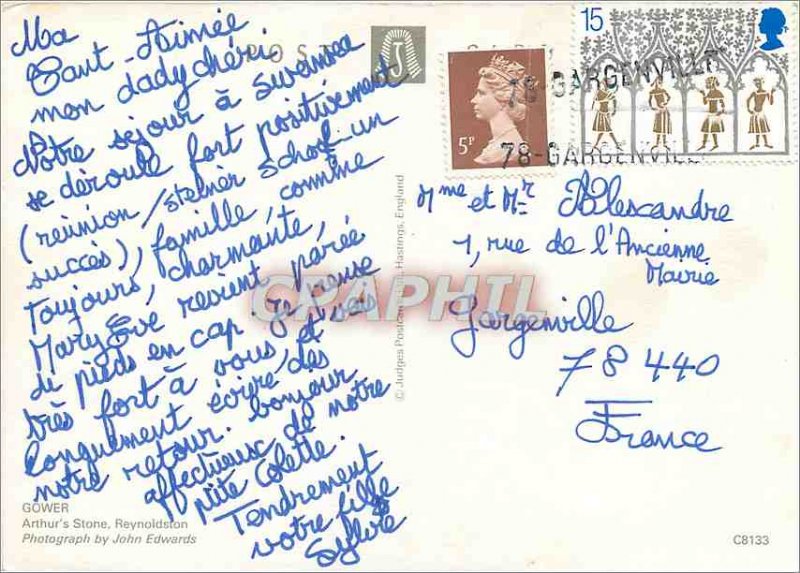 Ma
Tant-Aimée
mon dady chéri.
Notre séjour à Swansea
se déroule fort positivement
(réunion/steiner school un
succès), famille, comme
toujours, charmante,
Mary Eve revient parée
de pieds en cap je pense
très fort à vous, et vais
longuement écrire dès
notre retour. bonjour
affectueux de notre
ptite Colette.
Tendrement
votre fille
Sylvie
GOWER
Arthur's Stone, Reynoldston
Photograph by John Edwards
© Judges Postcards Ltd., Hastings, England
POST CARD
J
5P
15
78-GARGENVILLE
78-GARGENVILLE
Mme et Mr Alexcandre
1, rue de l'Ancienne
Mairie
Gargenville
78 440
France
CPAPHIL
C8133